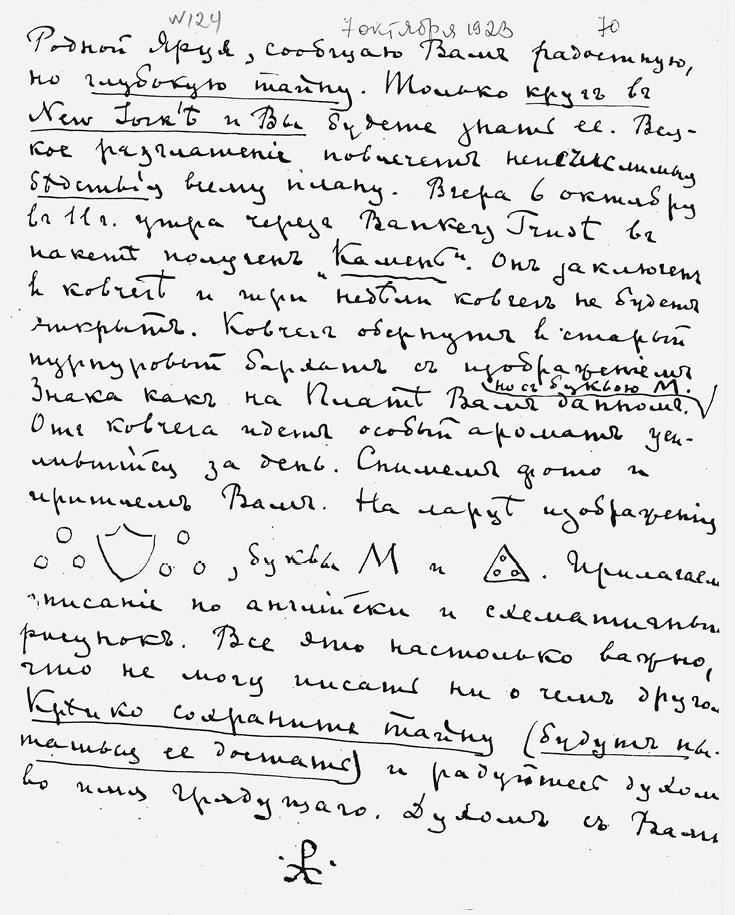 №124 7 октября 1923 70
Родной Яруя, сообщаю Вамъ радостную,
но глубокую тайну. Только кругъ въ
New York'ѣ и Вы будете знать ее. Вся-
кое разглашеніе повлечетъ неисчислимыя
бѣдствія всему плану. Вчера 6 октября
въ 11 г. утра черезъ Bankers Trust въ
пакетѣ полученъ „Камень“. Онъ заключенъ
в ковчегѣ и три недѣли ковчегъ не будетъ
открытъ. Ковчегъ обернутъ в старый
пурпуровый бархатъ съ изображеніемъ
но съ буквою М.
Знака какъ на Платѣ Вамъ данномъ.
Отъ ковчега идетъ особый ароматъ уси-
лившійся за день. Снимемъ фото и
пришлемъ Вамъ. На ларцѣ изображенія
, буквы М и . Прилагаем
описаніе по англійски и схематичный
рисунокъ. Все это настолько важно,
что не могу писать ни о чемъ другом
Крѣпко сохраните тайну (будутъ пы-
таться ее достать) и радуйтесь духом
во имя Грядущаго. Духомъ съ Вами